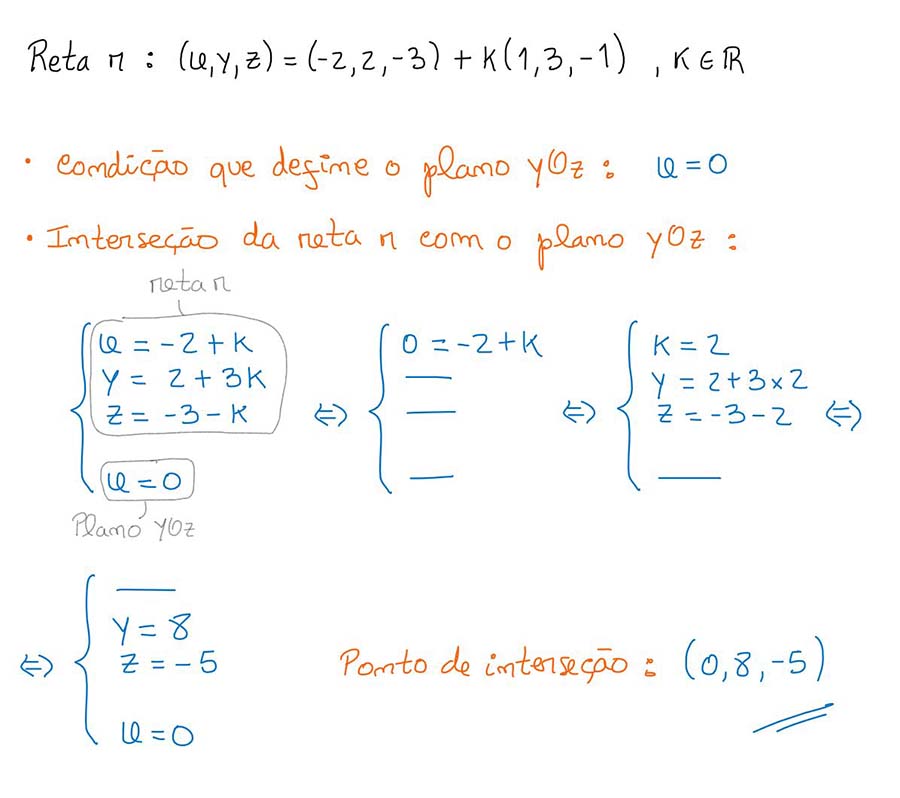 Reta r : (x,y,z) = (-2,2,-3) + K(1,3,-1) , K ∈ ℝ
• Condição que define o plano yOz : x = 0
• Interseção da reta r com o plano yOz :
reta r
x = -2 + K
y = 2 + 3K
z = -3 - K
x = 0
Plano yOz
⇔
0 = -2 + K
⇔
K = 2
y = 2 + 3 × 2
z = -3 - 2
⇔
⇔
y = 8
z = -5
x = 0
Ponto de interseção : (0, 8, -5)